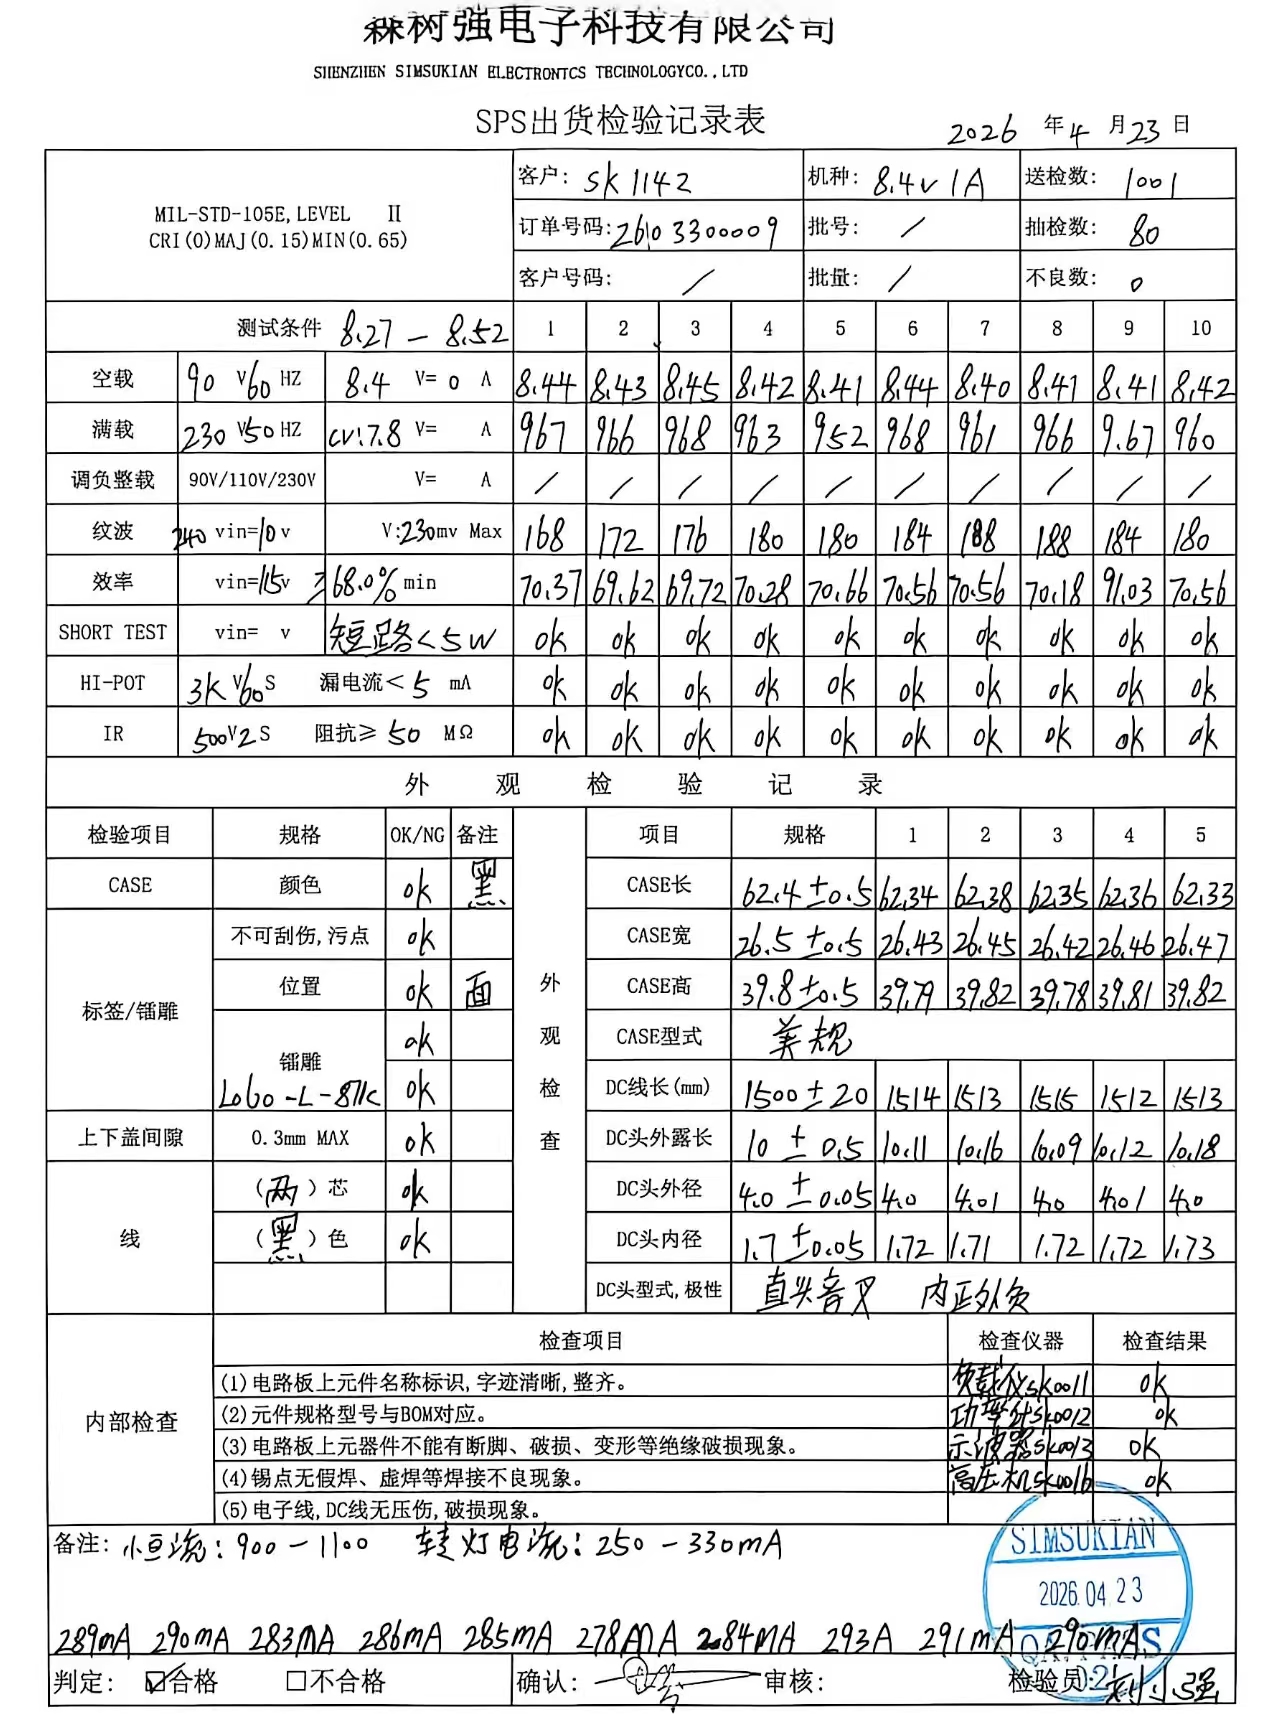 森树强电子科技有限公司
SHENZHEN SIMSUKIAN ELECTRONTCS TECHNOLOGYCO.,LTD
SPS出货检验记录表
2026 年 4 月 23 日
MIL-STD-105E,LEVEL Ⅱ
CRI(0)MAJ(0.15)MIN(0.65)
客户: SK1142 机种: 8.4V1A 送检数: 1001
订单号码: 26103300009 批号: / 抽检数: 80
客户号码: / 批量: / 不良数: 0
测试条件 8.27-8.52 1 2 3 4 5 6 7 8 9 10
空载 90 V 60 HZ 8.4 V= 0 A 8.44 8.43 8.45 8.42 8.41 8.44 8.40 8.41 8.41 8.42
满载 230 V 50 HZ CV:7.8 V= A 967 966 968 963 952 968 961 966 9.67 960
调负整载 90V/110V/230V V= A / / / / / / / / / /
纹波 240 vin=10v V:230mv Max 168 172 176 180 180 184 188 188 184 180
效率 vin=115v ≥68.0% min 70.37 69.62 69.72 70.28 70.66 70.56 70.56 70.18 91.03 70.56
SHORT TEST vin= v 短路<5W ok ok ok ok ok ok ok ok ok ok
HI-POT 3K V 60 S 漏电流< 5 mA ok ok ok ok ok ok ok ok ok ok
IR 500V 2 S 阻抗≥ 50 MΩ ok ok ok ok ok ok ok ok ok ok
外观检验记录
检验项目 规格 OK/NG 备注 外观检查 项目 规格 1 2 3 4 5
CASE 颜色 ok 黑 CASE长 62.4±0.5 62.34 62.38 62.35 62.36 62.33
标签/镭雕 不可刮伤,污点 ok CASE宽 26.5±0.5 26.43 26.45 26.42 26.46 26.47
位置 ok 面 CASE高 39.8±0.5 39.79 39.82 39.78 39.81 39.82
镭雕 ok CASE型式 美规
ok DC线长(mm) 1500±20 1514 1513 1515 1512 1513
上下盖间隙 0.3mm MAX ok DC头外露长 10±0.5 10.11 10.16 10.09 10.12 10.18
线 (两)芯 ok DC头外径 4.0±0.05 4.0 4.01 4.0 4.01 4.0
(黑)色 ok DC头内径 1.7±0.05 1.72 1.71 1.72 1.72 1.73
DC头型式,极性 直头音叉 内正外负
内部检查 检查项目 检查仪器 检查结果
(1)电路板上元件名称标识,字迹清晰,整齐。 负载仪SK0011 ok
(2)元件规格型号与BOM对应。 功率计SK0012 ok
(3)电路板上元器件不能有断脚、破损、变形等绝缘破损现象。 示波器SK0013 ok
(4)锡点无假焊、虚焊等焊接不良现象。 高压机SK0016 ok
(5)电子线,DC线无压伤,破损现象。
备注: 小恒流:900-1100 转灯电流:250-330mA
SIMSUKIAN
2026.04.23
289mA 290mA 283mA 286mA 285mA 278mA 284MA 293A 291mA 290mA
判定: ☑合格 □不合格 确认: 审核: 检验员: 刘小强